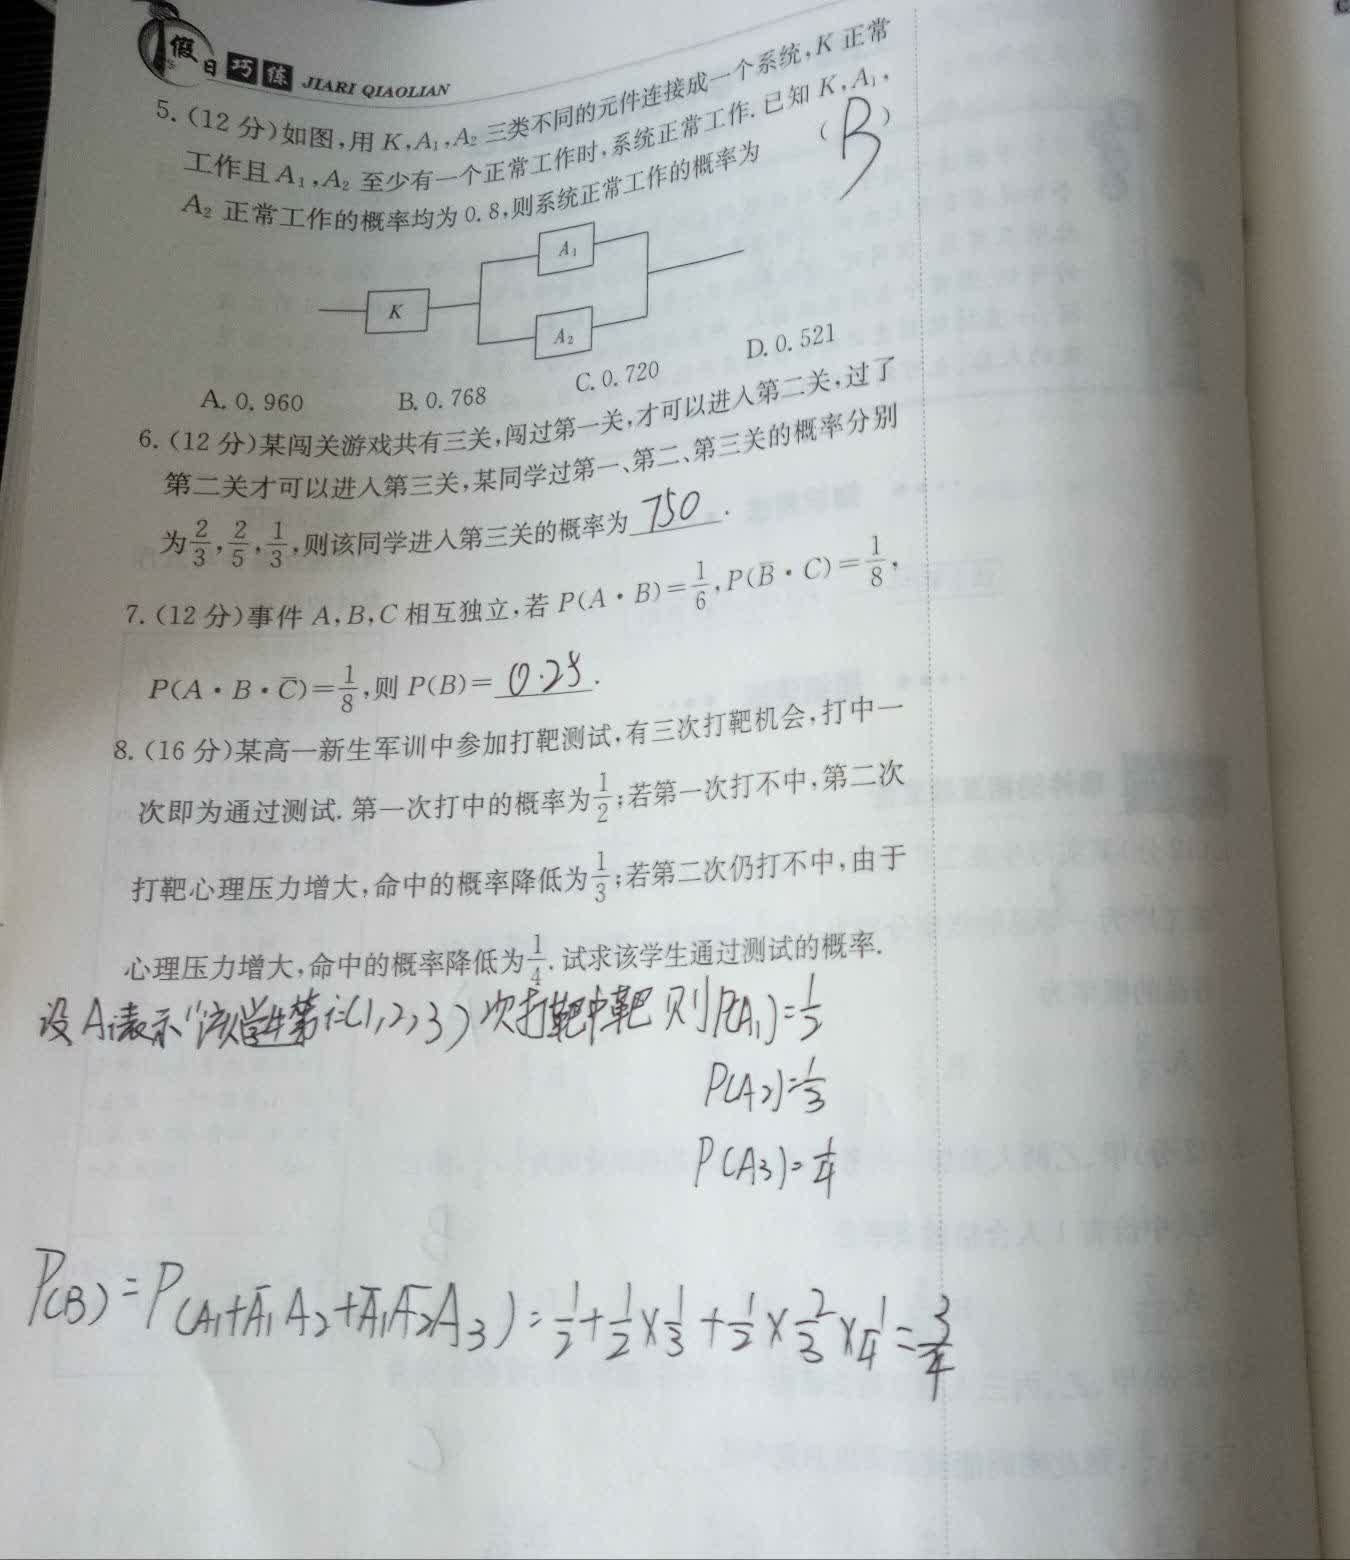 假日巧练 JIARI QIAOLIAN
5. (12 分)如图,用 K,A₁,A₂ 三类不同的元件连接成一个系统,K 正常
工作且 A₁,A₂ 至少有一个正常工作时,系统正常工作. 已知 K,A₁,
A₂ 正常工作的概率均为 0.8,则系统正常工作的概率为 ( B )
A₁
K
A₂
A. 0.960 B. 0.768 C. 0.720 D. 0.521
6. (12 分)某闯关游戏共有三关,闯过第一关,才可以进入第二关,过了
第二关才可以进入第三关,某同学过第一、第二、第三关的概率分别
为 2/3, 2/5, 1/3,则该同学进入第三关的概率为 750 .
7. (12 分)事件 A,B,C 相互独立,若 P(A·B)=1/6,P(B̄·C)=1/8,
P(A·B·C̄)=1/8,则 P(B)= 0.25 .
8. (16 分)某高一新生军训中参加打靶测试,有三次打靶机会,打中一
次即为通过测试. 第一次打中的概率为 1/2;若第一次打不中,第二次
打靶心理压力增大,命中的概率降低为 1/3;若第二次仍打不中,由于
心理压力增大,命中的概率降低为 1/4. 试求该学生通过测试的概率.
设 Aᵢ表示“该学生第 i=(1,2,3)次打靶中靶 则 P(A₁)=1/2
P(A₂)=1/3
P(A₃)=1/4
P(B)=P(A₁+Ā₁A₂+Ā₁Ā₂A₃)=1/2+1/2×1/3+1/2×2/3×1/4=3/4